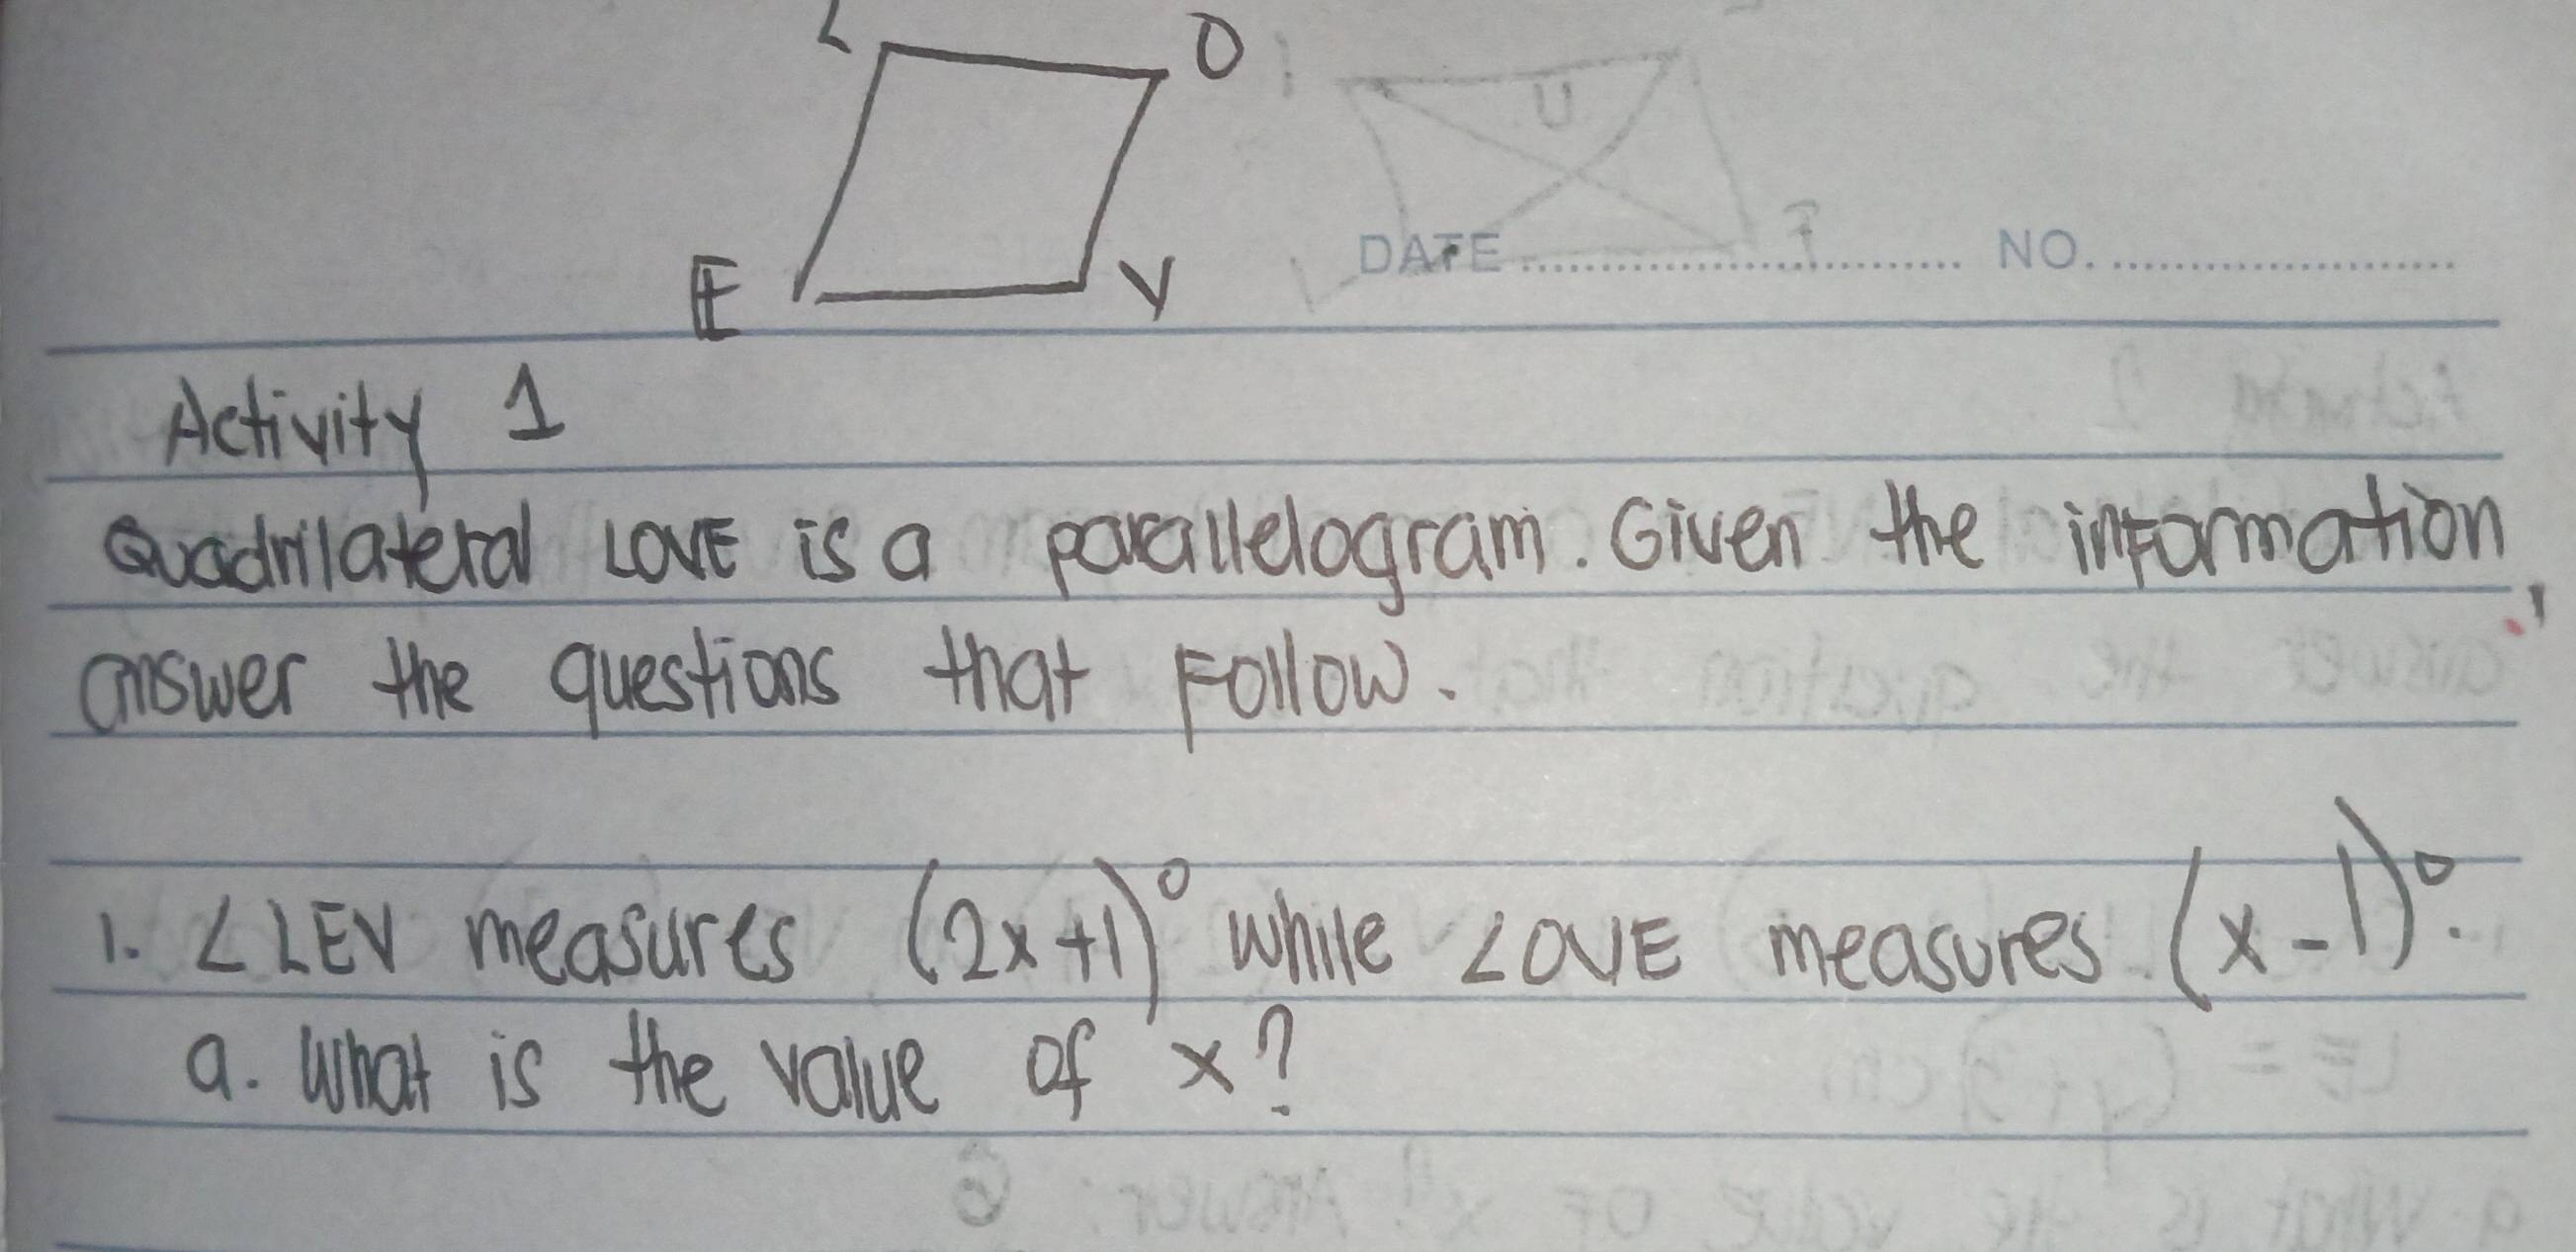 L O
U
E V
F
DATE NO.
Activity 1
Quadrilateral LOVE is a parallelogram. Given the information,
answer the questions that follow.
1. ∠LEV measures (2x+1)° while ∠OVE measures (x-1)°.
a. What is the value of x?